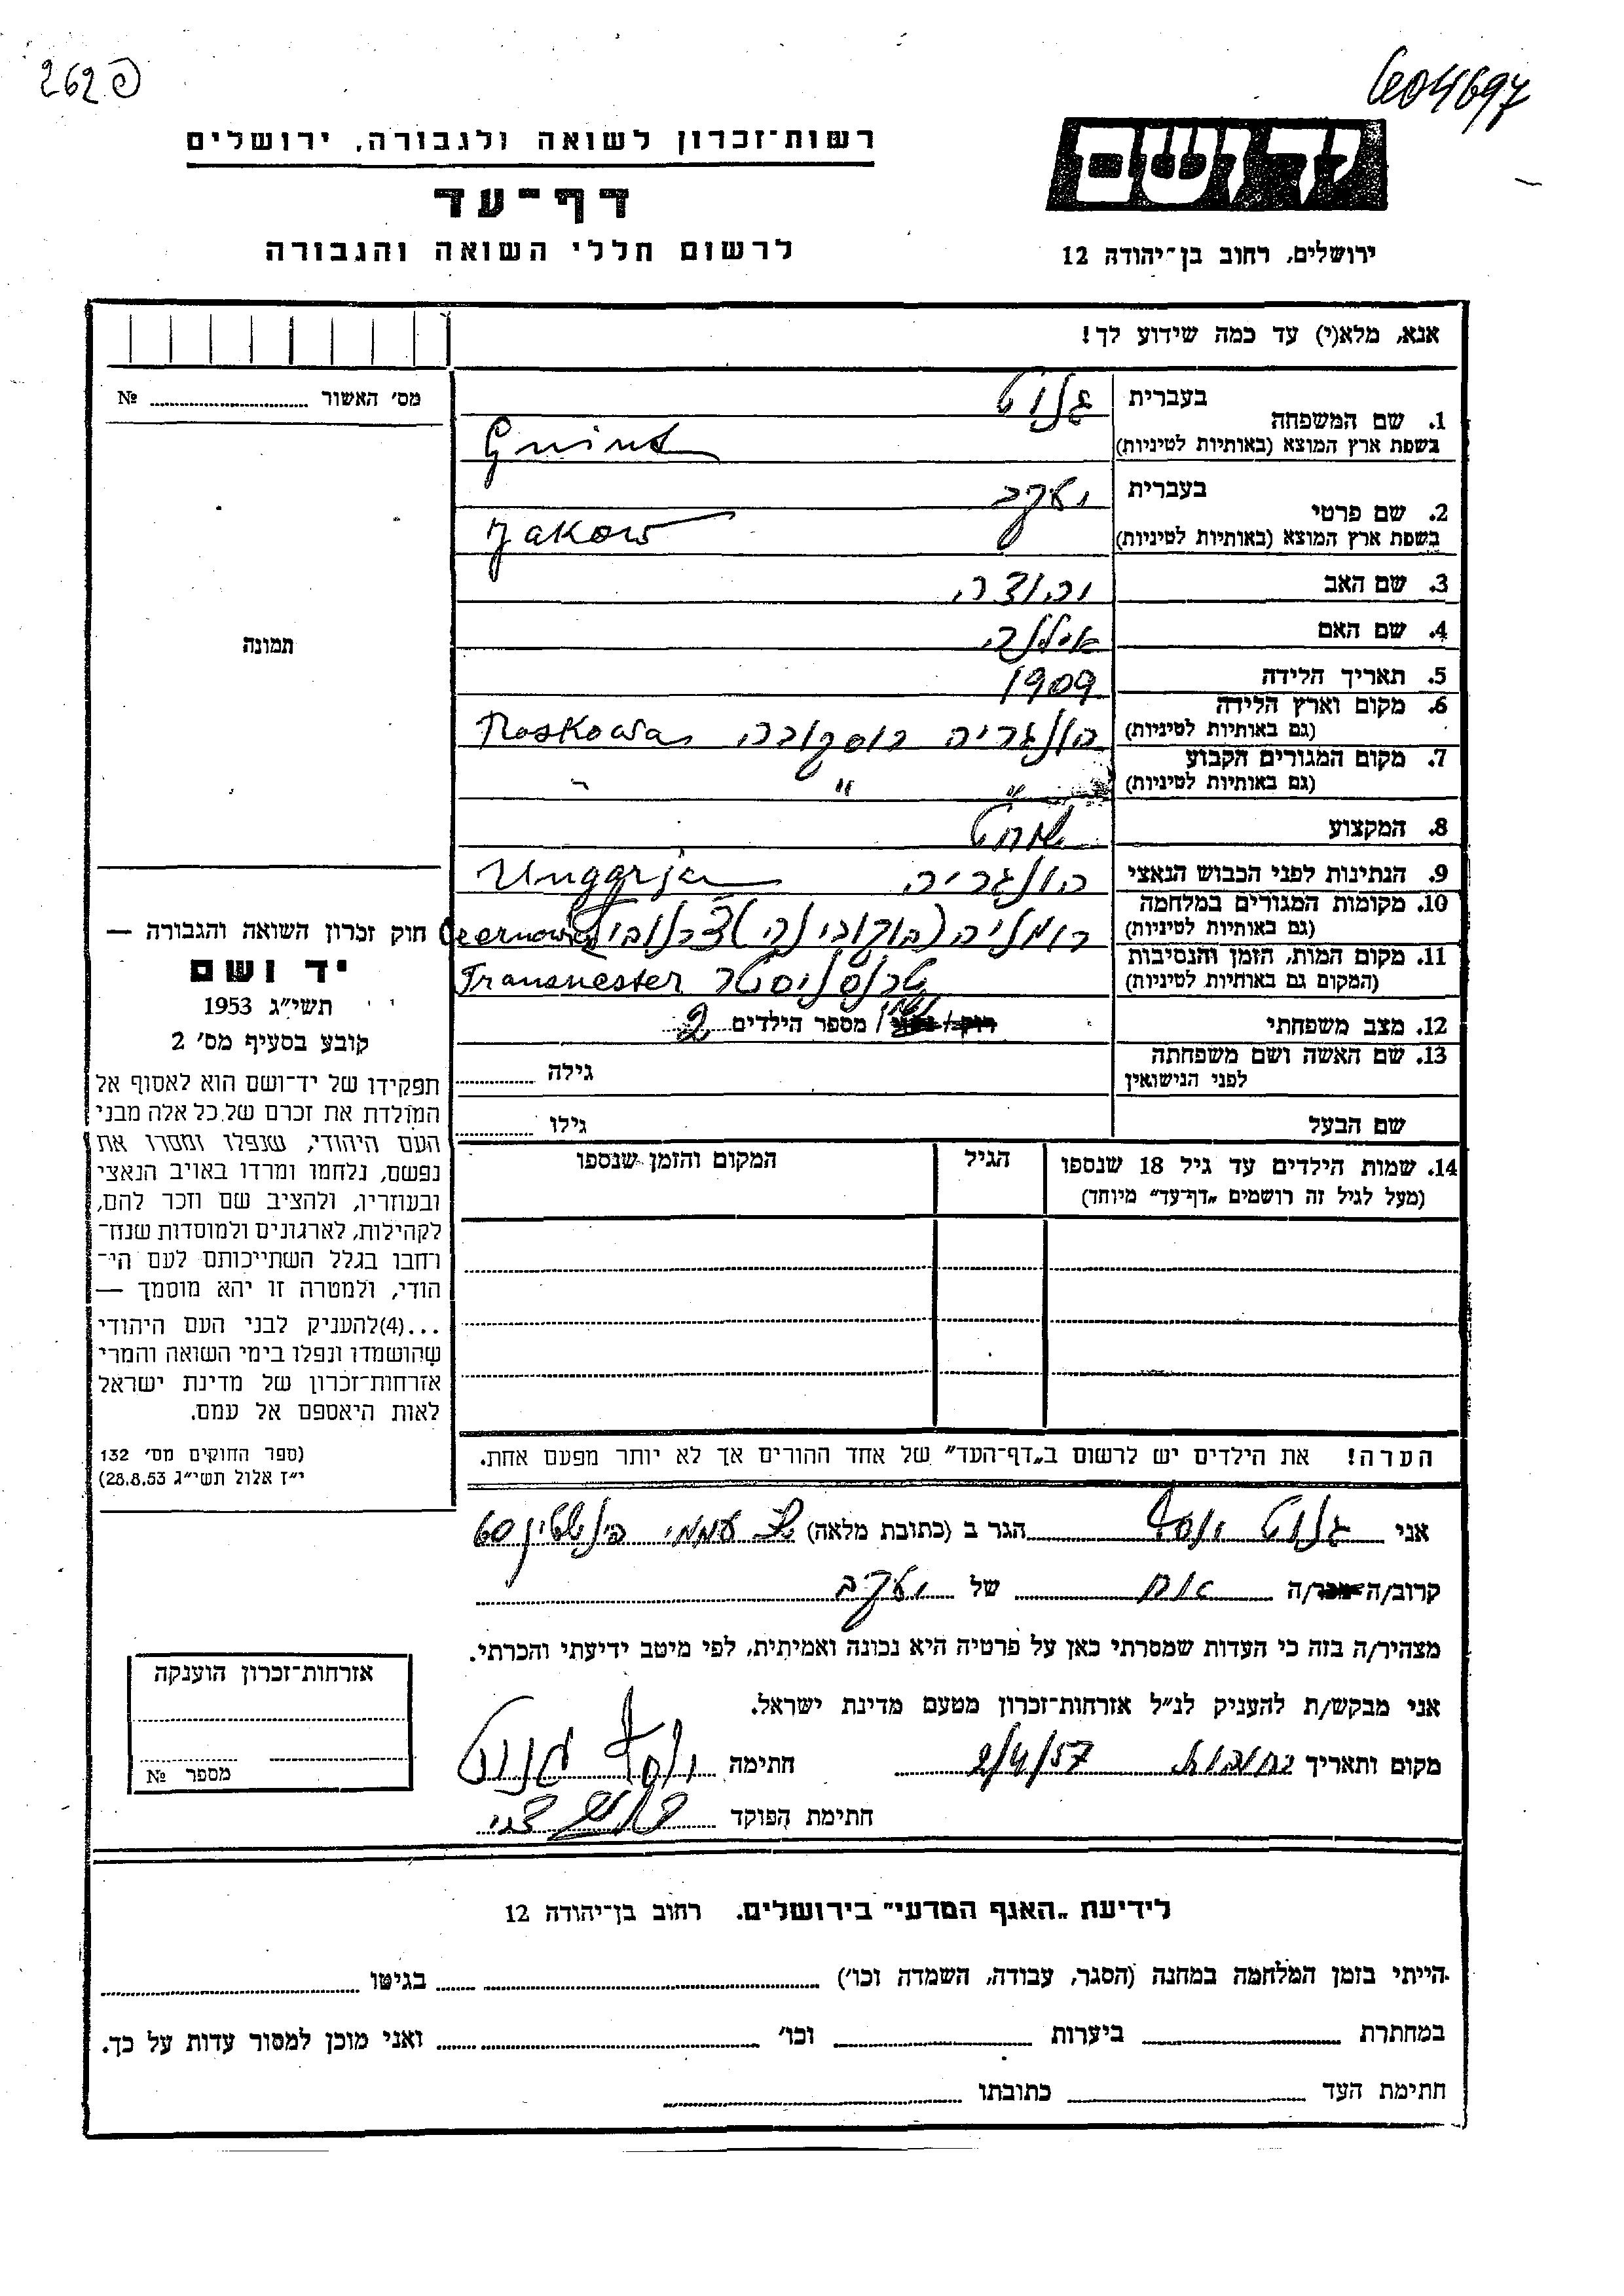 262 פ
604697
רשות־זכרון לשואה ולגבורה, ירושלים
דף־עד
לרשום חללי השואה והגבורה
יד ושם
ירושלים, רחוב בן־יהודה 12
אנא, מלא(י) עד כמה שידוע לך!
מס׳ האשור № 
תמונה
1. שם המשפחה
בעברית
בשפת ארץ המוצא (באותיות לטיניות)
2. שם פרטי
בעברית יעקב
בשפת ארץ המוצא (באותיות לטיניות) Jakow
3. שם האב יהודה
4. שם האם
5. תאריך הלידה 1909
6. מקום וארץ הלידה
(גם באותיות לטיניות) הונגריה רוסקובה Roskowa
7. מקום המגורים הקבוע
(גם באותיות לטיניות) " " -
8. המקצוע שוחט
9. הנתינות לפני הכבוש הנאצי הונגריה Unggrja
10. מקומות המגורים במלחמה
(גם באותיות לטיניות) רומניה (בוקובינה) צרנוביץ
11. מקום המות, הזמן והנסיבות
(המקום גם באותיות לטיניות) טרנסניסטר Transnester
12. מצב משפחתי נשוי מספר הילדים 2
13. שם האשה ושם משפחתה
לפני הנישואין
גילה
שם הבעל גילו
14. שמות הילדים עד גיל 18 שנספו
(מעל לגיל זה רושמים „דף־עד״ מיוחד)
הגיל
המקום והזמן שנספו
הערה! את הילדים יש לרשום ב„דף־העד״ של אחד ההורים אך לא יותר מפעם אחת.
חוק זכרון השואה והגבורה —
יד ושם
תשי״ג 1953
קובע בסעיף מס׳ 2
תפקידו של יד־ושם הוא לאסוף אל
המולדת את זכרם של כל אלה מבני
העם היהודי, שנפלו ומסרו את
נפשם, נלחמו ומרדו באויב הנאצי
ובעוזריו, ולהציב שם וזכר להם,
לקהילות, לארגונים ולמוסדות שנח־
רחבו בגלל השתייכותם לעם הי־
הודי, ולמטרה זו יהא מוסמך —
...(4)להעניק לבני העם היהודי
שהושמדו ונפלו בימי השואה והמרי
אזרחות־זכרון של מדינת ישראל
לאות היאספם אל עמם.
(ספר החוקים מס׳ 132
י״ז אלול תשי״ג 28.8.53)
אני יוסף הגר ב (כתובת מלאה) עממי 60
קרוב/ה /ה אח של יעקב
מצהיר/ה בזה כי העדות שמסרתי כאן על פרטיה היא נכונה ואמיתית, לפי מיטב ידיעתי והכרתי.
אני מבקש/ת להעניק לנ״ל אזרחות־זכרון מטעם מדינת ישראל.
מקום ותאריך רחובות 2/4/57 חתימה יוסף
חתימת הפוקד
אזרחות־זכרון הוענקה
מספר №
לידיעת „האגף המדעי״ בירושלים. רחוב בן־יהודה 12
הייתי בזמן המלחמה במחנה (הסגר, עבודה, השמדה וכו׳) בגיטו
במחתרת ביערות וכו׳ ואני מוכן למסור עדות על כך.
חתימת העד כתובתו